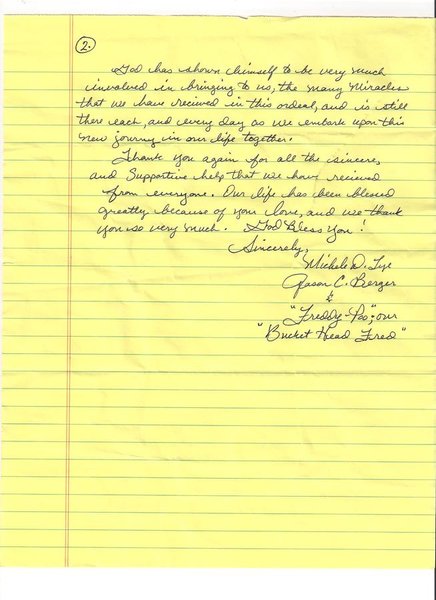 2.
God has shown himself to be very much
involved in bringing to us, the many Miracles
that we have recieved in this ordeal, and is still
there each, and every day as we embark upon this
new journey in our life together.
Thank you again for all the sincere,
and supportive help that we have recieved
from everyone. Our life has been blessed
greatly because of your love, and we thank
you so very much. God Bless You!
Sincerely,
Michele D.
Jason C. Berger
&
"Freddy-Poo"; our
"Bucket Head Fred"